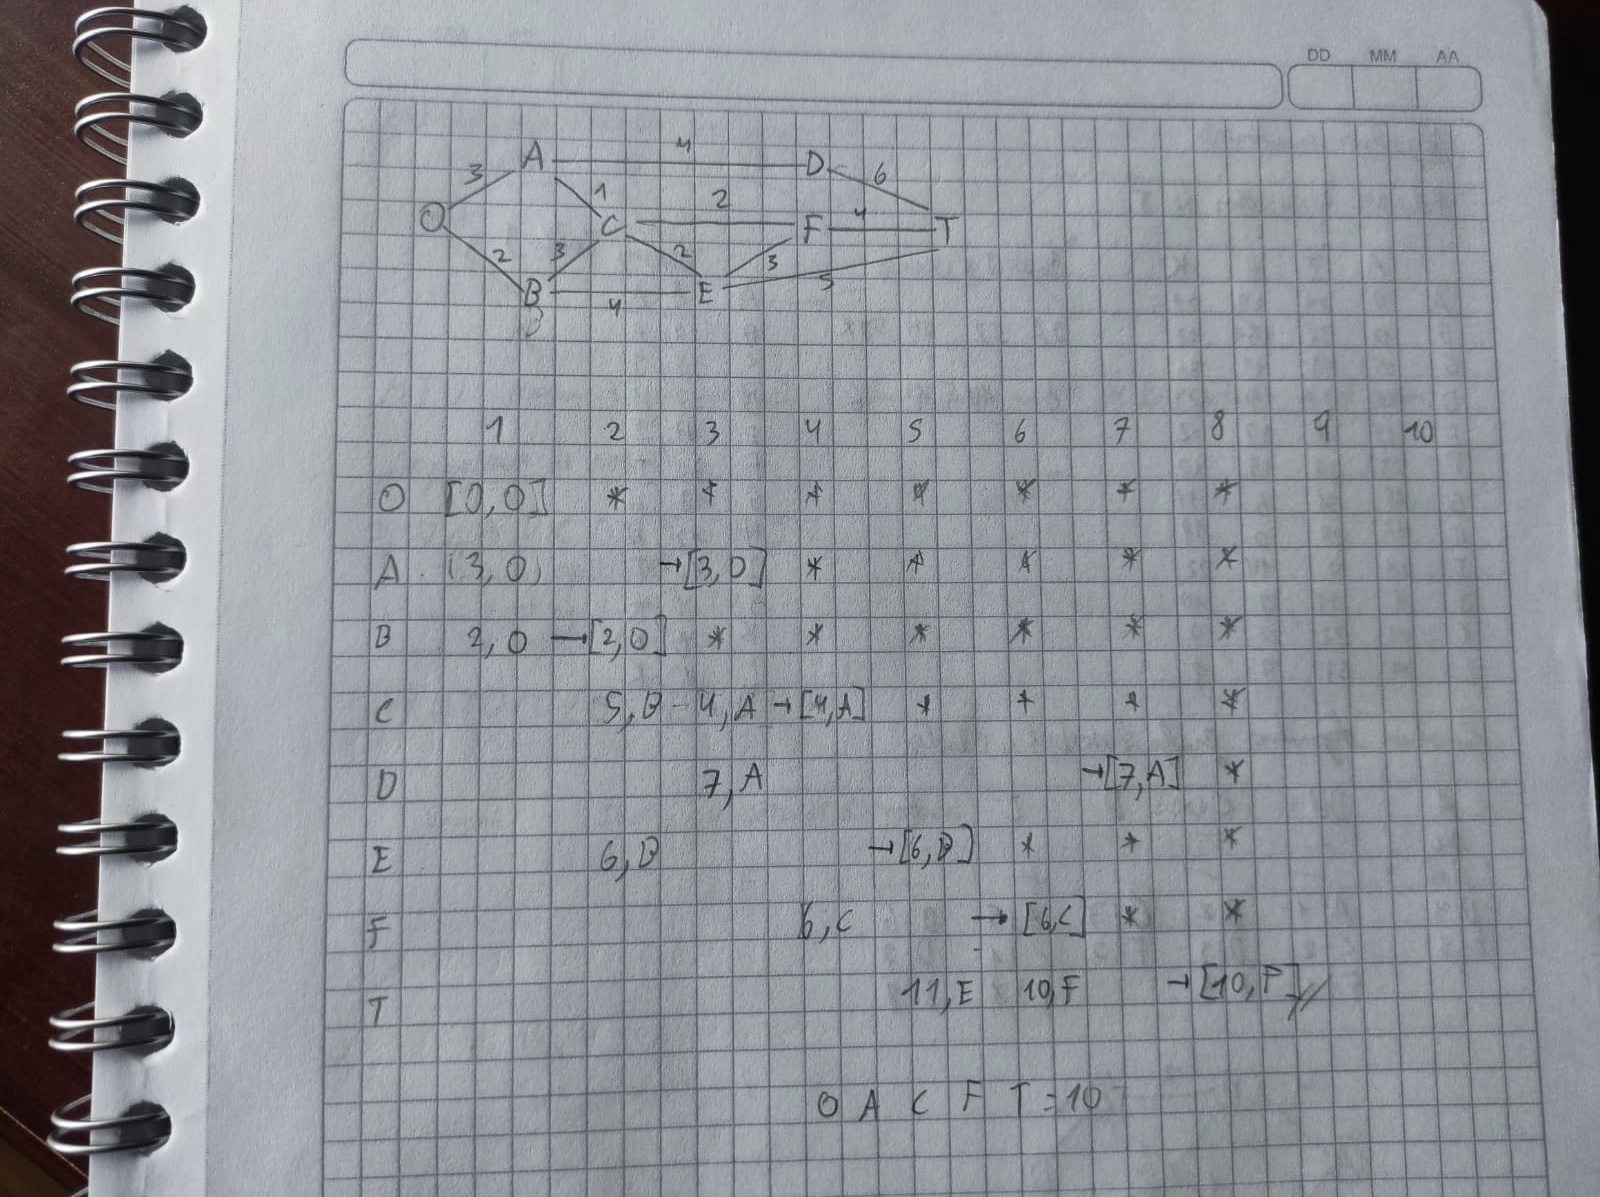 DD MM AA
A 4 D
3 1 2 6
O C F 4 T
2 3 2 3
B 4 E 5
1 2 3 4 5 6 7 8 9 10
O [0,0] * * * * * * *
A (3,0) →[3,0] * * * * *
B 2,0 →[2,0] * * * * * *
C 5,B - 4,A →[4,A] * * * *
D 7,A →[7,A] *
E 6,B →[6,B] * * *
F 6,C → [6,C] * *
T 11,E 10,F →[10,F]//
O A C F T = 10